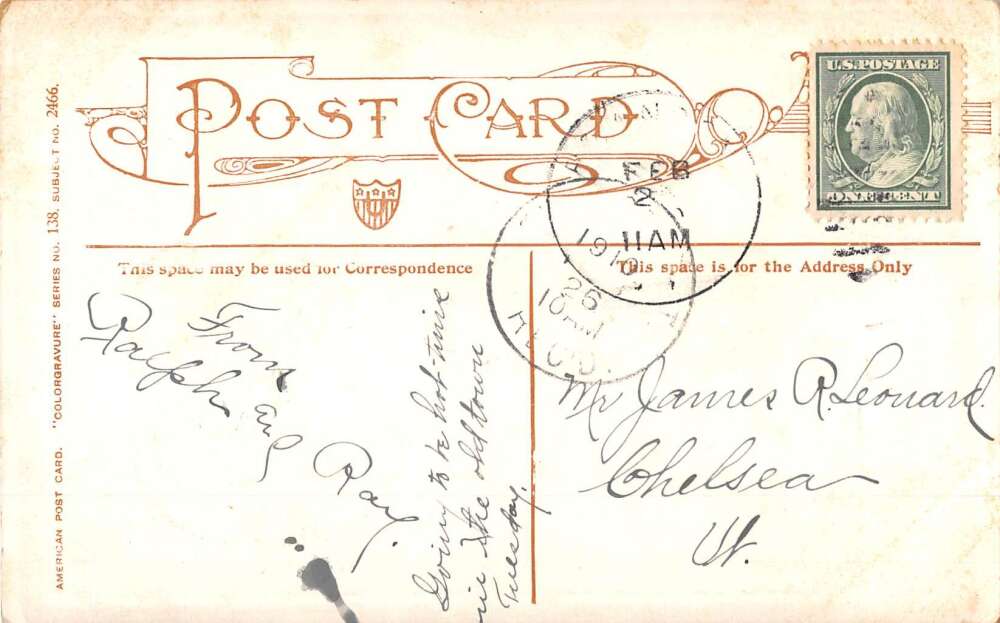 POST CARD
U.S. POSTAGE
ONE CENT
FEB
2
11 AM
1910
26
10 AM
REC'D.
This space may be used for Correspondence
This space is for the Address Only
From
Ralph and
Ray.
Going to be hot-time
in the old town
Tuesday.
Mr James R. Leonard.
Chelsea
Vt.
AMERICAN POST CARD. "COLORGRAVURE" SERIES NO. 138, SUBJECT NO. 2466.